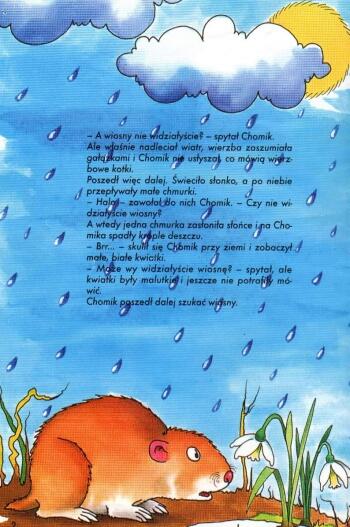 – A wiosny nie widziałyście? – spytał Chomik.
Ale właśnie nadleciał wiatr, wierzba zaszumiała
gałązkami i Chomik nie usłyszał, co mówią wierz-
bowe kotki.
Poszedł więc dalej. Świeciło słonko, a po niebie
przepływały małe chmurki.
– Halo! – zawołał do nich Chomik. – Czy nie wi-
działyście wiosny?
A wtedy jedna chmurka zasłoniła słońce i na Cho-
mika spadły krople deszczu.
– Brr... – skulił się Chomik przy ziemi i zobaczył
małe, białe kwiatki.
– Może wy widziałyście wiosnę? – spytał, ale
kwiatki były malutkie i jeszcze nie potrafiły mó-
wić.
Chomik poszedł dalej szukać wiosny.